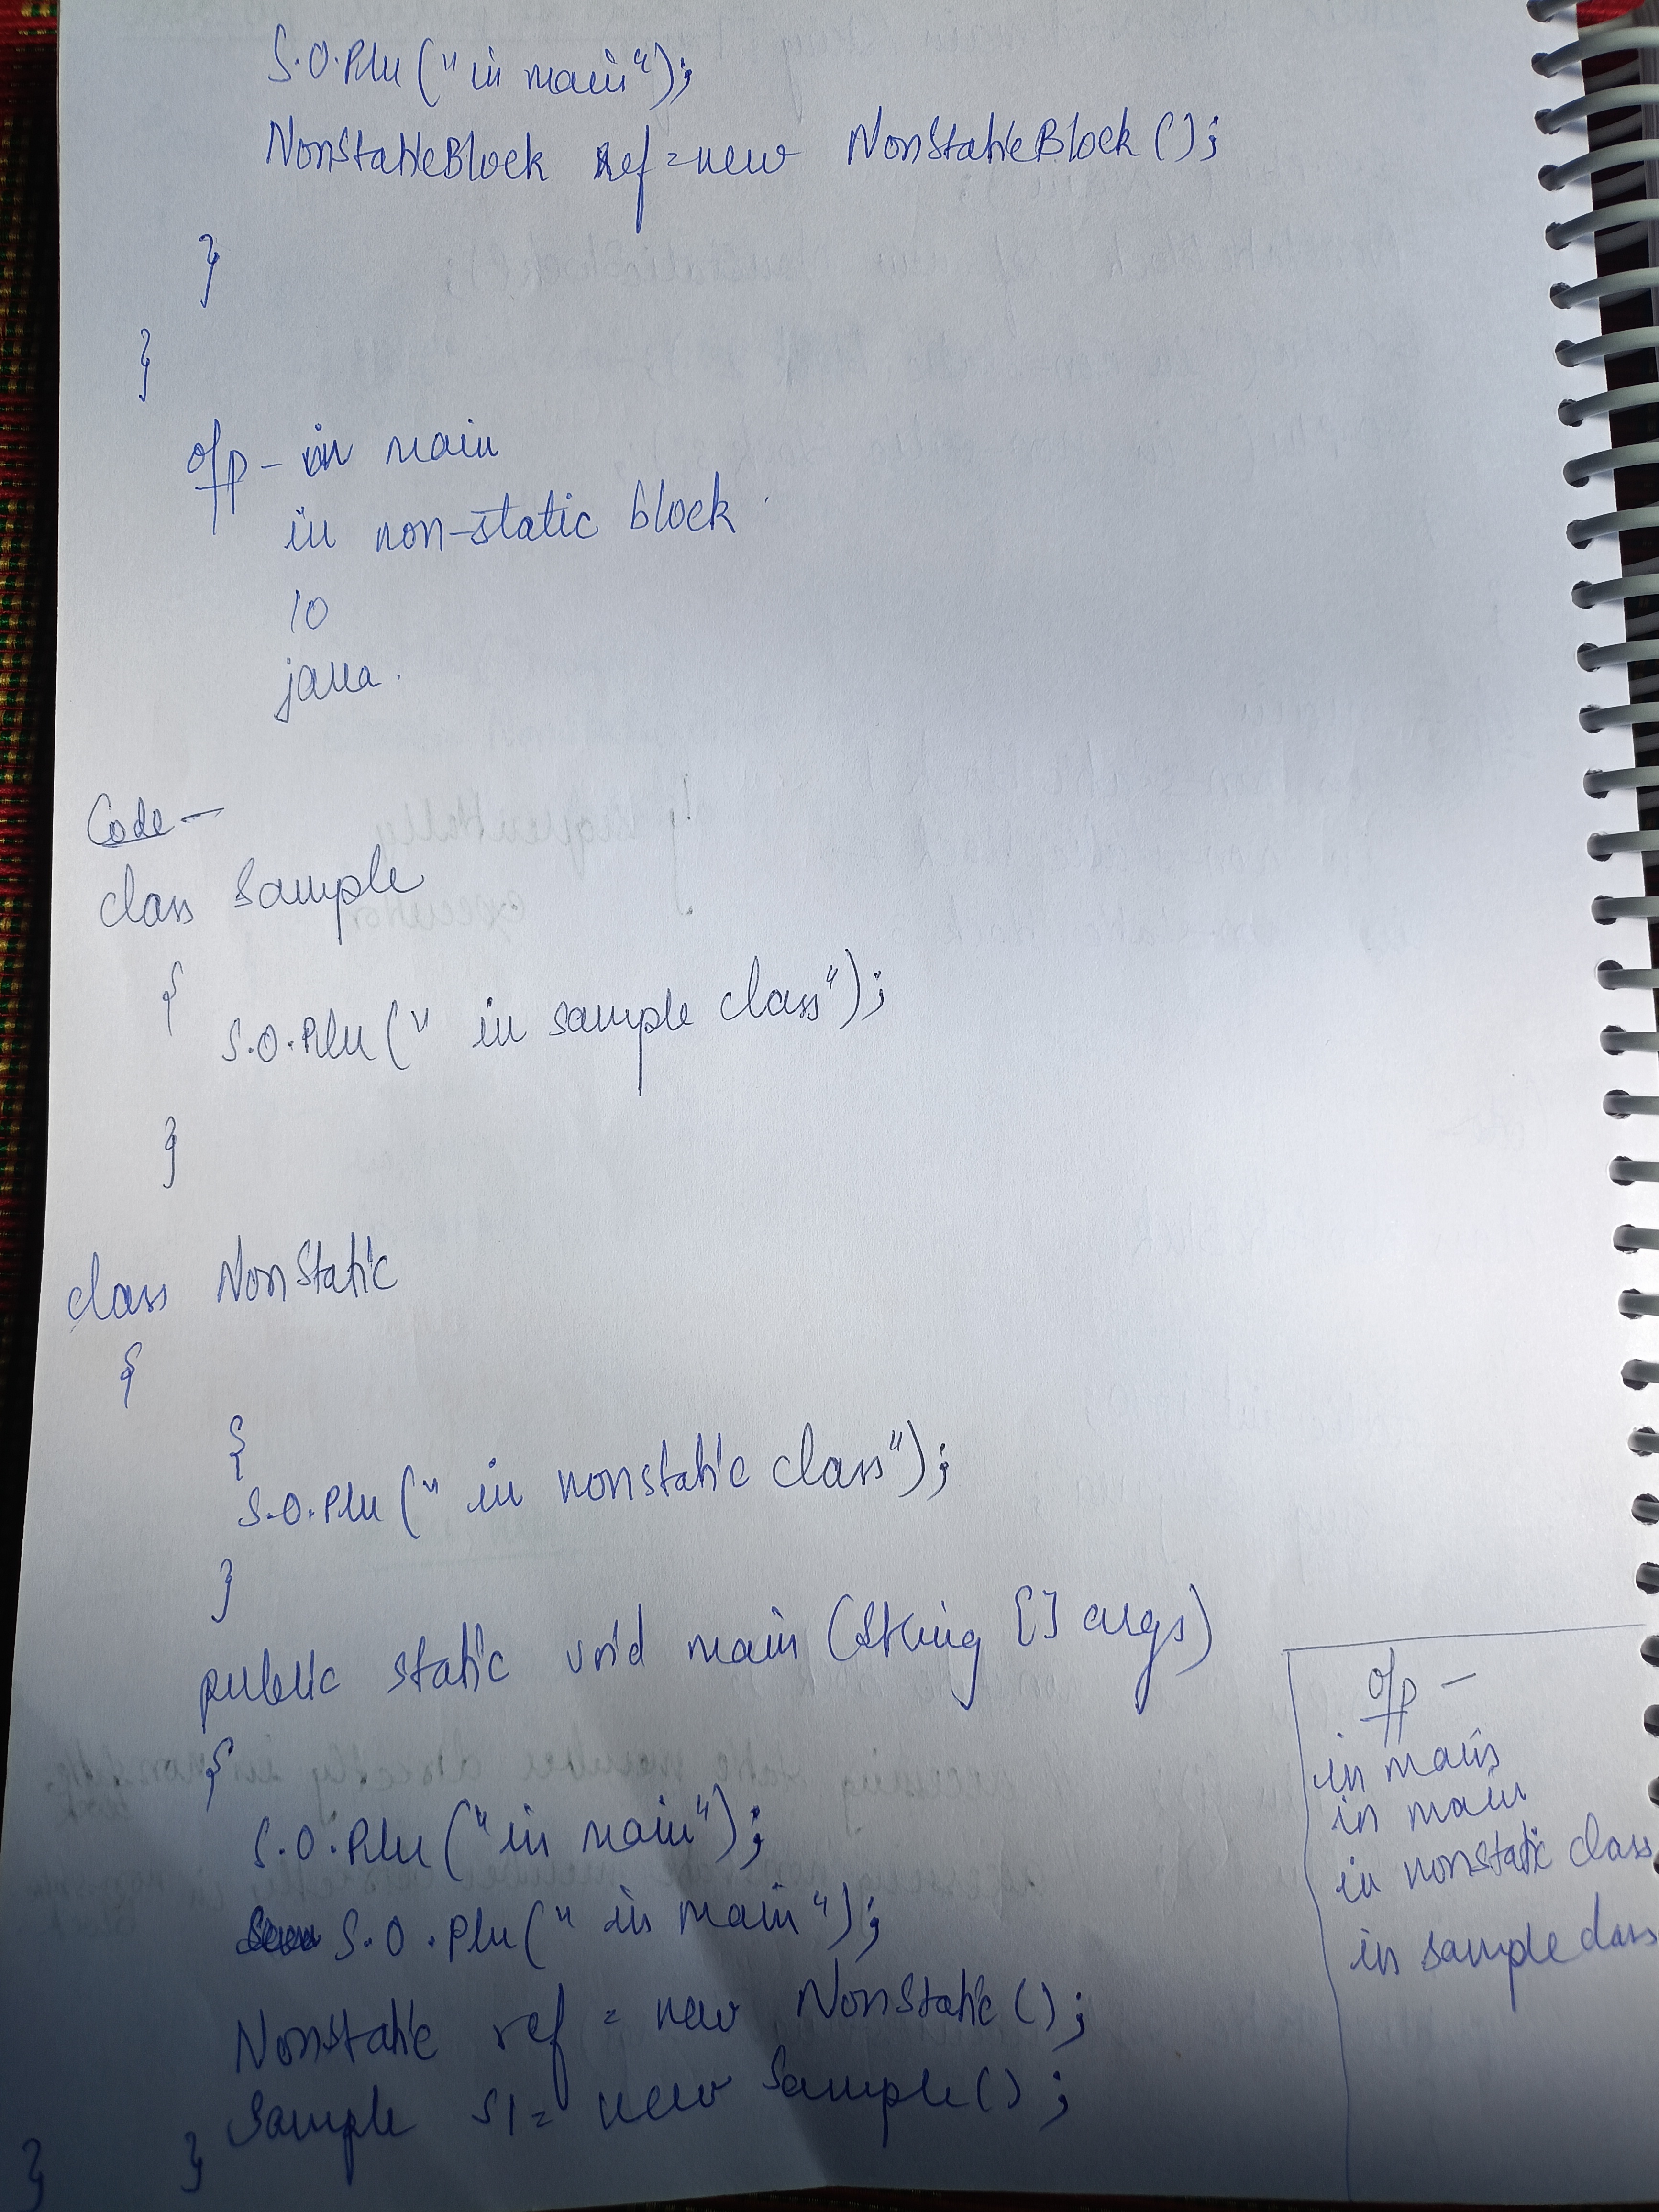 S.O.Pln ("in main");
NonStaticBlock ref = new NonStaticBlock ();
}
}
o/p - in main
in non-static block
10
java.
Code -
class Sample
{
S.O.Pln (" in sample class");
}
class NonStatic
{
{
S.O.Pln (" in nonstatic class");
}
public static void main (String [] args)
{
S.O.Pln ("in main");
S.O.Pln (" in main");
NonStatic ref = new NonStatic ();
Sample s1 = new Sample () ;
}
}
o/p -
in main
in main
in nonstatic class
in sample class